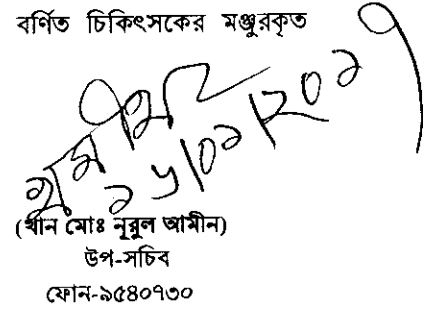 বর্ণিত চিকিৎসকের মঞ্জুরকৃত
(খান মোঃ নূরুল আমীন)
উপ-সচিব
ফোন-৯৫৪০৭৩০